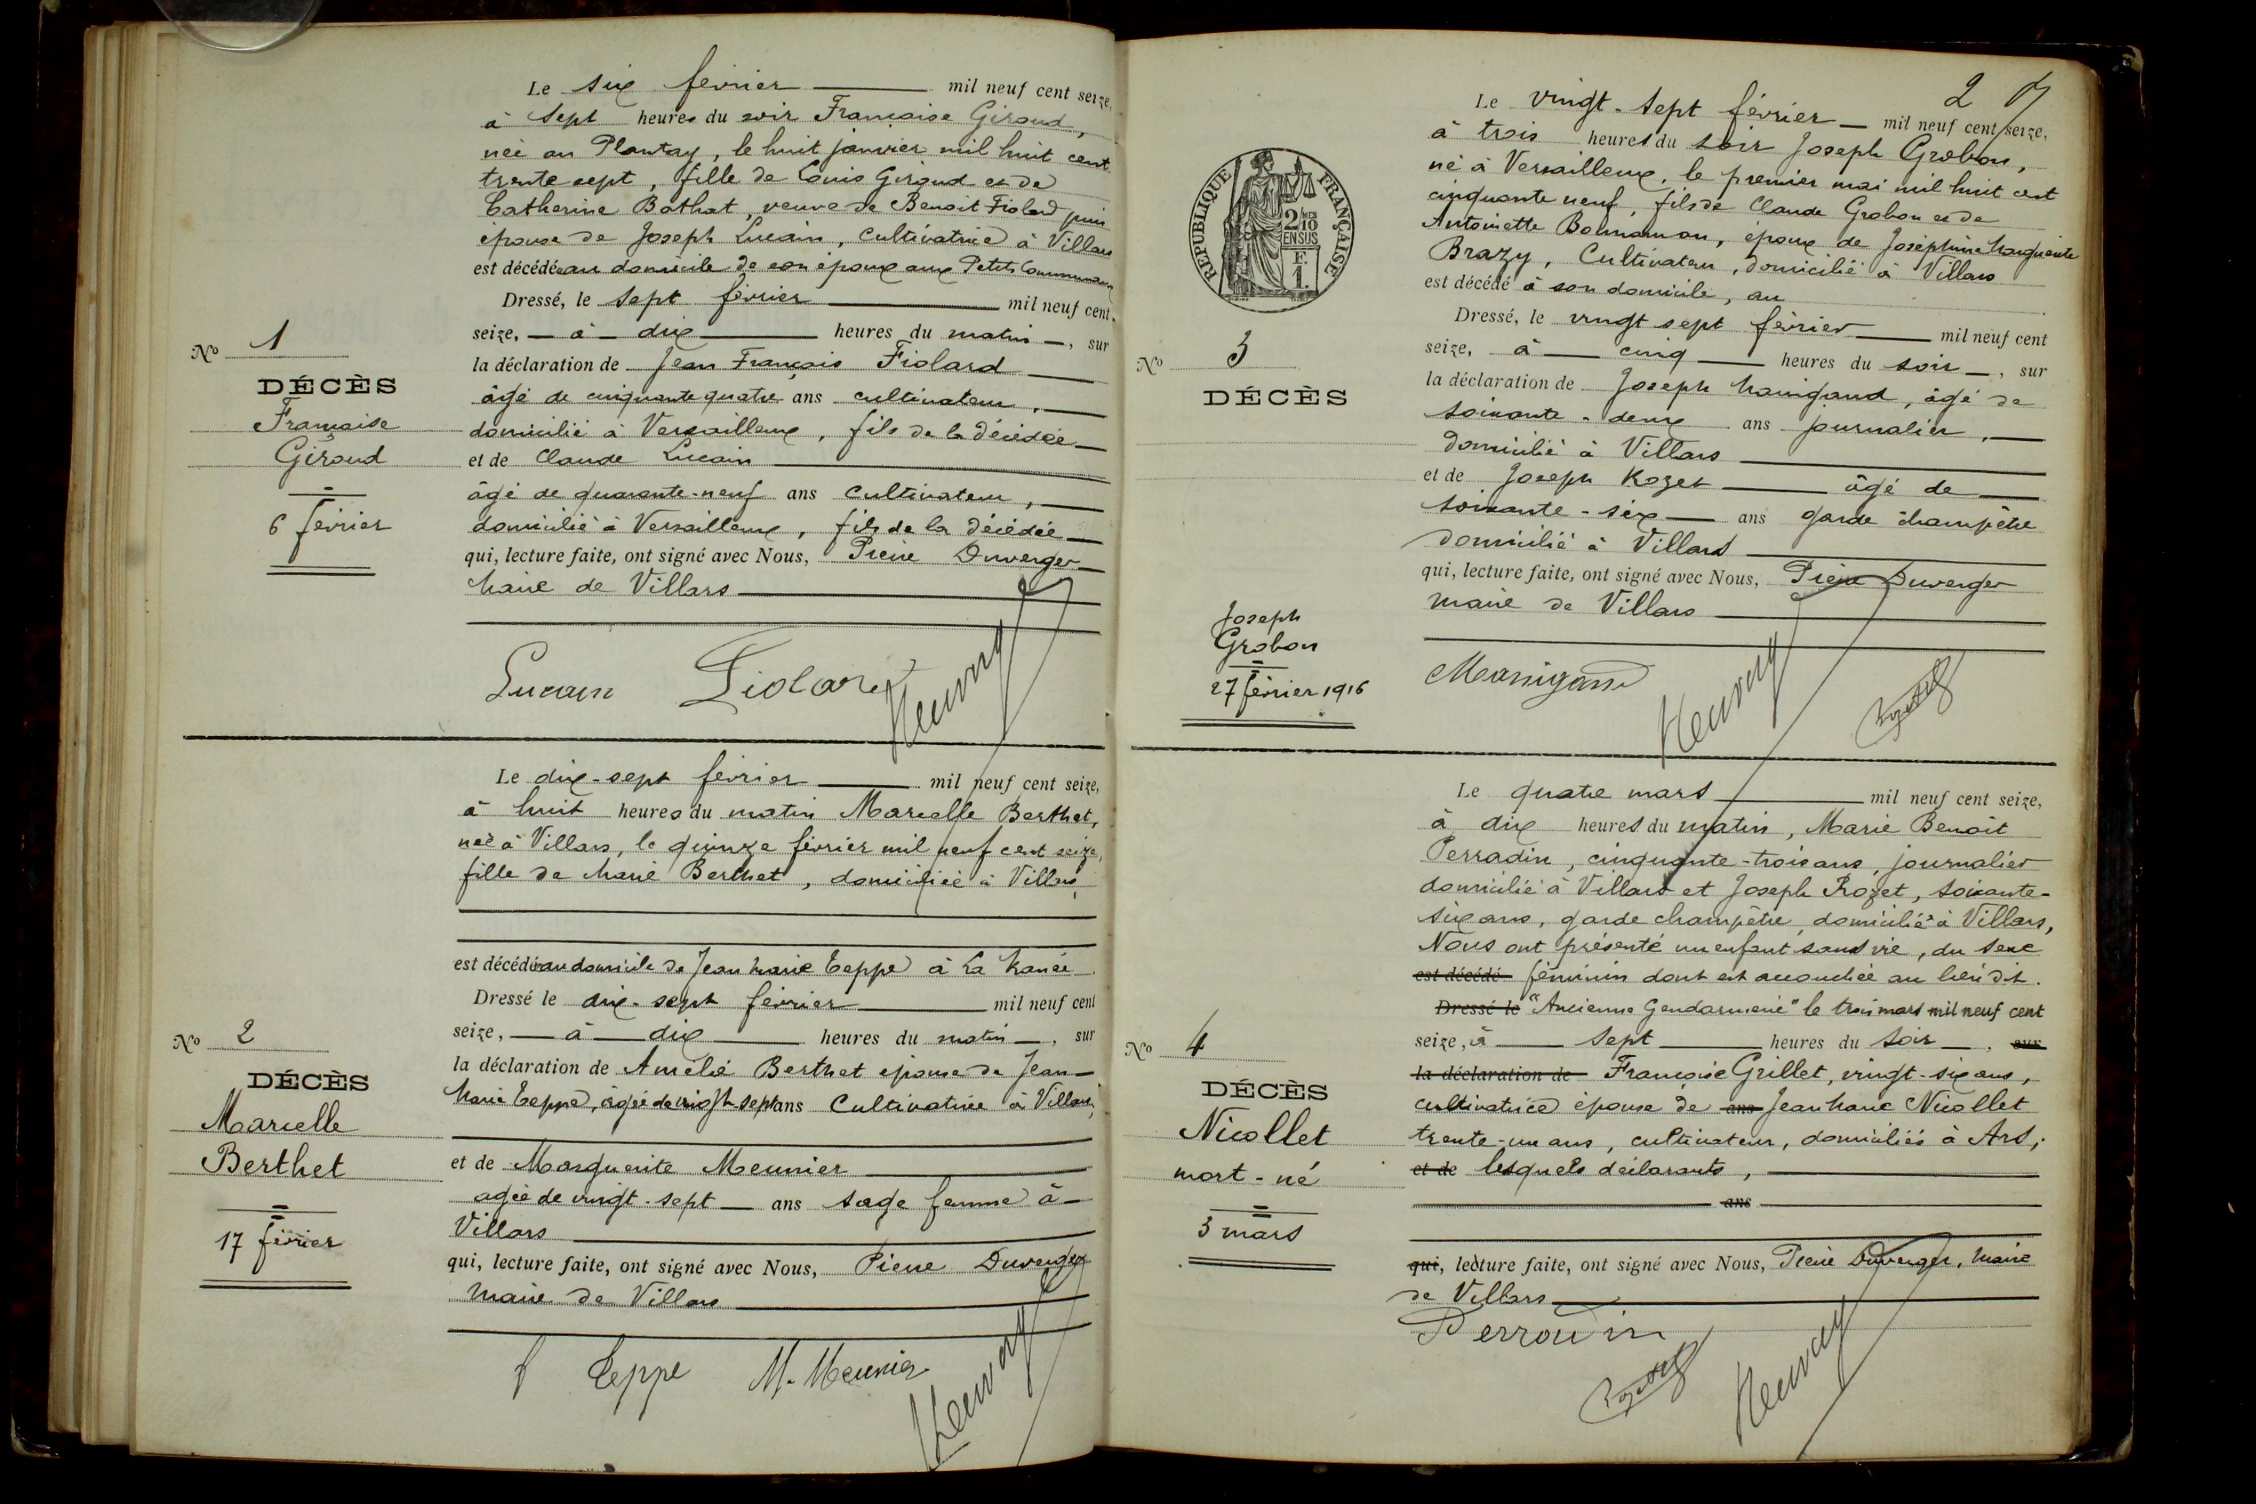 Le six février mil neuf cent seize,
à sept heures du soir Françoise Giroud,
née au Plantay, le huit janvier mil huit cent
trente sept, fille de Louis Giroud et de
Catherine Bathat, veuve de Benoit Fiolard puis
épouse de Joseph Lucain, cultivatrice à Villars
est décédée au domicile de son époux aux Petits Communaux
Dressé, le sept février mil neuf cent
seize, à dix heures du matin, sur
la déclaration de Jean François Fiolard
âgé de cinquante quatre ans cultivateur,
domicilié à Versailleux, fils de la décédée
et de Claude Lucain
âgé de quarante-neuf ans cultivateur,
domicilié à Versailleux, fils de la décédée
qui, lecture faite, ont signé avec Nous, Pierre Duverger
Maire de Villars
Lucain Fiolard
No 1
DÉCÈS
Françoise
Giroud
6 février
Le dix-sept février mil neuf cent seize,
à huit heures du matin Marcelle Berthet,
née à Villars, le quinze février mil neuf cent seize,
fille de Marie Berthet, domiciliée à Villars,
est décédée au domicile de Jean Marie Teppe à La
Dressé le dix-sept février mil neuf cent
seize, à dix heures du matin, sur
la déclaration de Amélie Berthet épouse de Jean-
Marie Teppe, âgée de vingt-sept ans Cultivatrice à Villars,
et de Marguerite Meunier
agée de vingt-sept ans sage femme à
Villars
qui, lecture faite, ont signé avec Nous, Pierre Duverger
Maire de Villars
f Teppe M. Meunier
No 2
DÉCÈS
Marcelle
Berthet
17 février
2
Le vingt-sept février mil neuf cent seize,
à trois heures du soir Joseph Grobon,
né à Versailleux, le premier mai mil huit cent
cinquante neuf, fils de Claude Grobon et de
Antoinette Bonnamon, époux de Joséphine Marguerite
Brazy, Cultivateur, domicilié à Villars
est décédé à son domicile, au
Dressé, le vingt sept février mil neuf cent
seize, à cinq heures du soir, sur
la déclaration de Joseph Mainigand, âgé de
soixante-deux ans journalier,
domicilié à Villars
et de Joseph Rozet âgé de
soixante-six ans garde champêtre
domicilié à Villars
qui, lecture faite, ont signé avec Nous, Pierre Duverger
maire de Villars
RÉPUBLIQUE FRANÇAISE
2/10 EN SUS
F. 1.
No 3
DÉCÈS
Joseph
Grobon
27 février 1916
Le quatre mars mil neuf cent seize,
à dix heures du matin, Marie Benoît
Perradin, cinquante-trois ans, journalier
domicilié à Villars et Joseph Rozet, soixante-
six ans, garde champêtre, domicilié à Villars,
Nous ont présenté un enfant sans vie, du sexe
est décédé féminin dont est accouchée au lieu dit
Dressé le "Ancienne Gendarmerie" le trois mars mil neuf cent
seize, à sept heures du soir, sur
la déclaration de Françoise Grillet, vingt-six ans,
cultivatrice épouse de ans Jean Marie Nicollet
trente-un ans, cultivateur, domiciliés à Ars;
et de lesquels déclarants,
ans
qui, lecture faite, ont signé avec Nous, Pierre Duverger, Maire
de Villars
Perradin
No 4
DÉCÈS
Nicollet
mort-né
3 mars